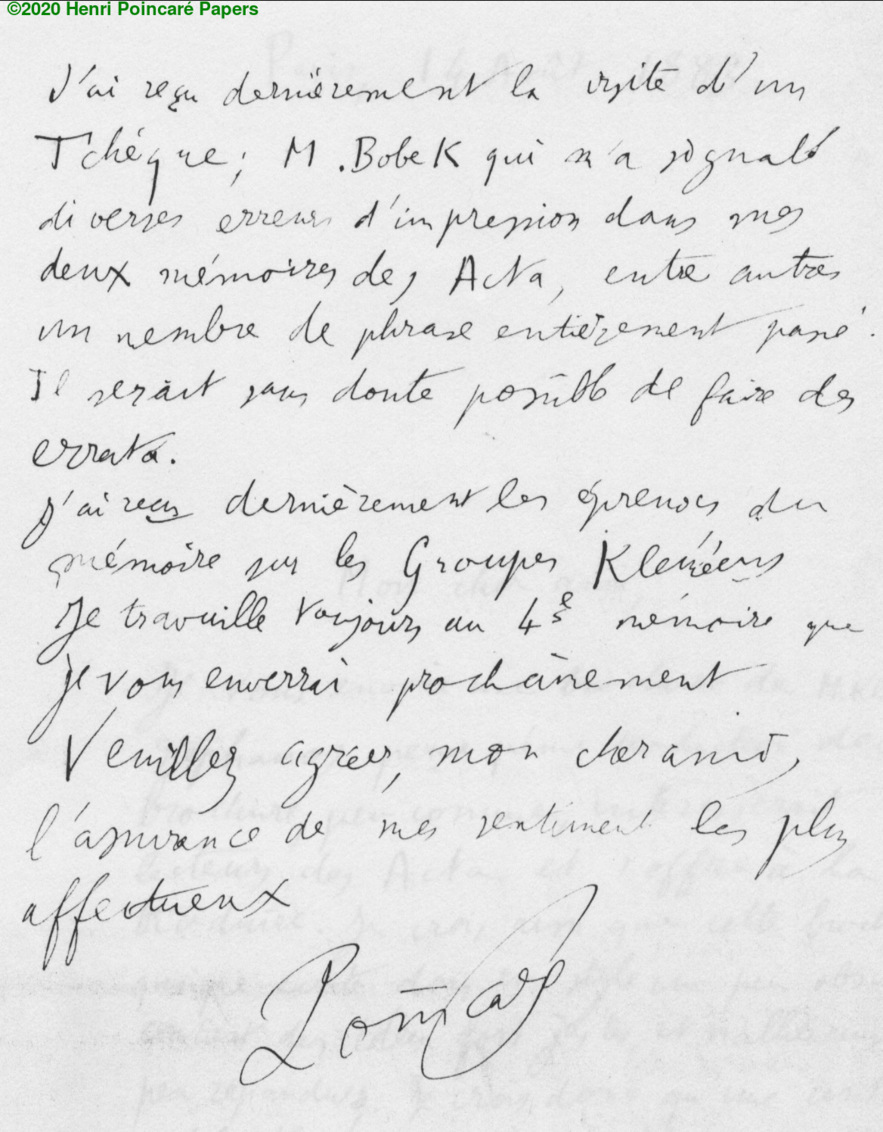 ©2020 Henri Poincaré Papers
J'ai reçu dernièrement la visite d'un
Tchéque; M. Bobek qui m'a signalé
diverses erreurs d'impression dans mes
deux mémoires des Acta, entre autres
un membre de phrase entièrement passé.
Il serait sans doute possible de faire des
errata.
J'ai reçu dernièrement les épreuves du
mémoire sur les Groupes Kleinéens
Je travaille toujours au 4e mémoire que
je vous enverrai prochainement
Veuillez agréer, mon cher ami,
l'assurance de mes sentiment les plus
affectueux
Poincaré